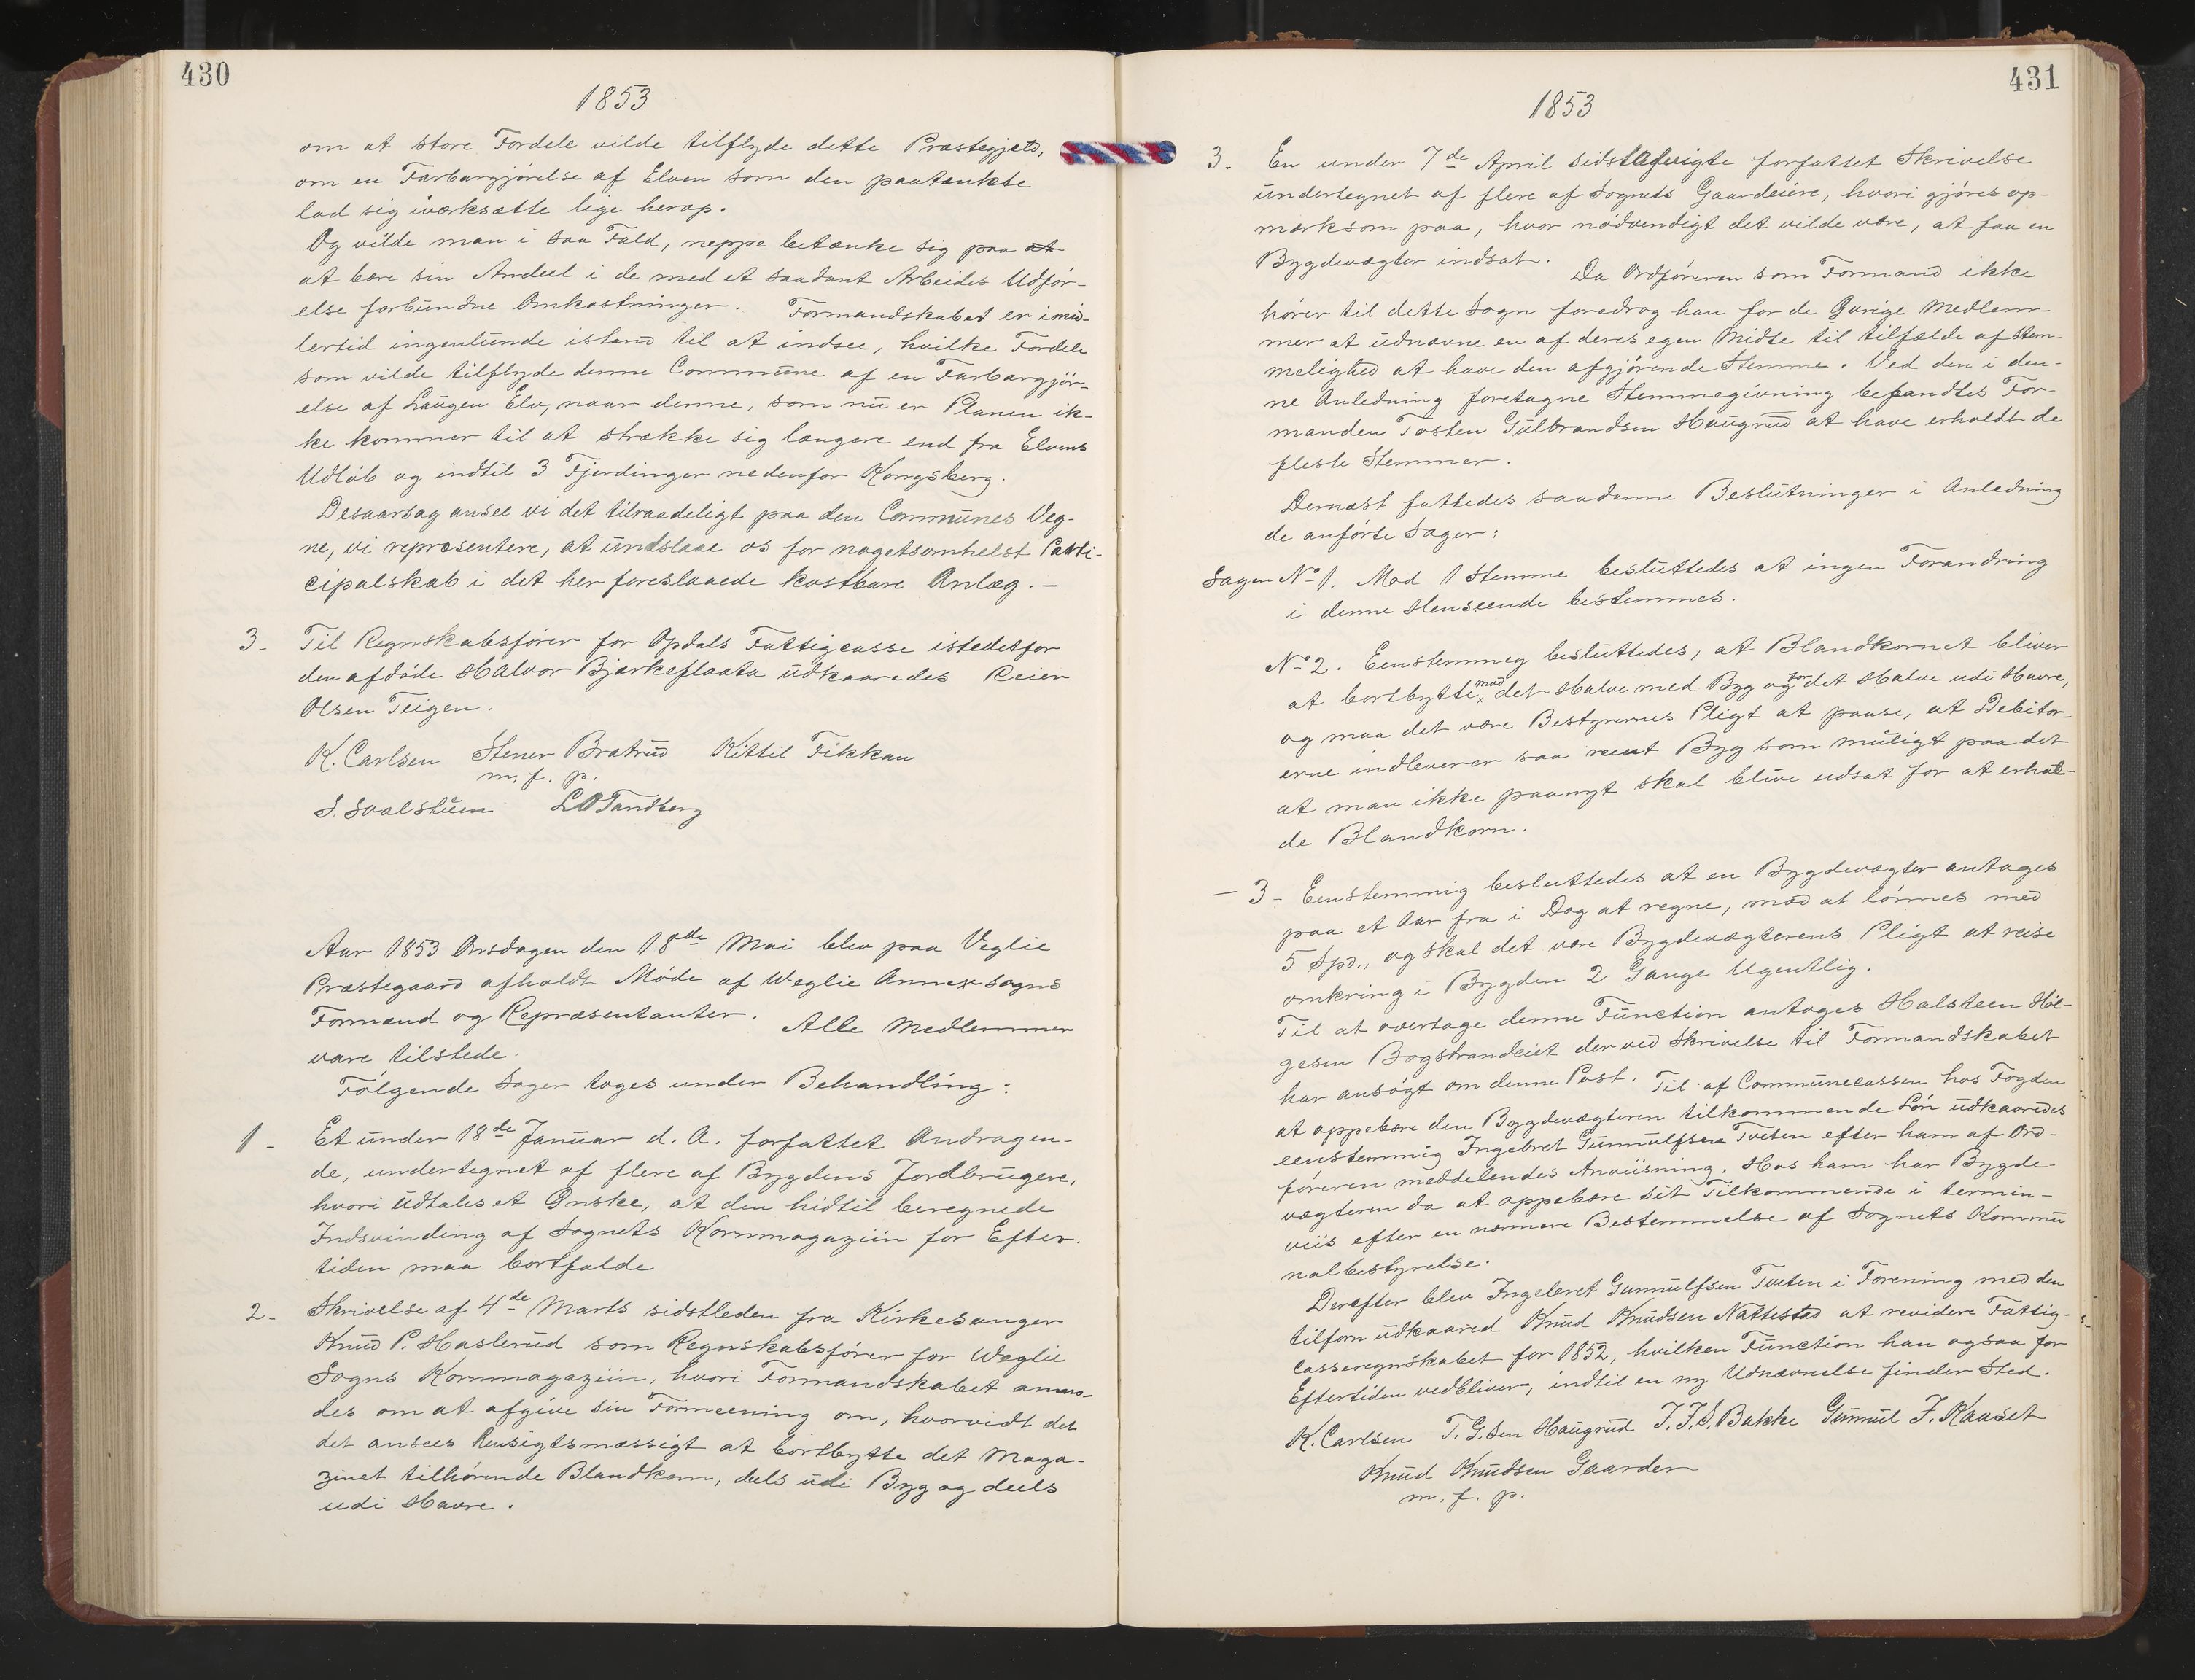 430
1853
om at store Fordele vilde tilflyde dette Præstegjeld,
om en Farbargjørelse af Elven som den paatænkte
lod sig iværksætte lige herop.
Og vilde man i saa Fald, neppe betænke sig paa at
at bære sin Andeel i de med et saadant Arbeides Udfør-
else forbundne Omkostninger. Formandskabet er imid-
lertid ingenlunde istand til at indsee, hvilke Fordele
som vilde tilflyde denne Commune af en Farbargjør-
else af Laugen Elv, naar denne, som nu er Planen ik-
ke kommer til at strække sig længere end fra Elvens
Udløb og indtil 3 Fjerdinger nedenfor Kongsberg.
Desaarsag ansee vi det tilraadeligt paa den Communes Veg-
ne, vi repræsentere, at undslaae os for nogetsomhelst Parti-
cipalskab i det her foreslaaede kostbare Anlæg. –
3. Til Regnskabsfører for Opdals Fattigcasse istedetfor
den afdøde Halvor Bjørkeflaata udkaaredes Reier
Olsen Teigen.
K. Carlsen Stener Bratrud Kittil Fikkan
m. f. p.
S. Soalstuen L O Tandberg
Aar 1853 Onsdagen den 18de Mai blev paa Veglie
Præstegaard afholdt Møde af Weglie Annexsogns
Formænd og Repræsentanter. Alle Medlemmer
vare tilstede.
Følgende Sager toges under Behandling:
1 - Et under 18de Januar d. A. forfattet Andragen-
de, undertegnet af flere af Bygdens Jordbrugere,
hvori udtales et Ønske, at den hidtil beregnede
Indsvinding af Sognets Kornmagaziin for Efter-
tiden maa bortfalde
2 - Skrivelse af 4de Marts sidstleden fra Kirkesanger
Knud P. Haslerud som Regnskabsfører for Weglie
Sogns Kornmagaziin, hvori Formandskabet anmo-
des om at afgive sin Formeening om, hvorvidt det
det ansees Hensigtsmæssigt at bortbytte det Maga-
zinet tilhørende Blandkorn, dels udi Byg og deels
udi Havre.
431
1853
3. En under 7de April sidstafvigte forfattet Skrivelse
undertegnet af flere af Sognets Gaardeiere, hvori gjøres op-
mærksom paa, hvor nødvendigt det vilde være, at faa en
Bygdevægter indsat. Da Ordføreren som Formand ikke
hører til dette Sogn foredrog han for de Øvrige Medlem-
mer at udnævne en af deres egen Midte til tilfælde af Stem-
melighed at have den afgjørende Stemme. Ved den i den-
ne Anledning foretagne Stemmegivning befandtes For-
manden Tosten Gulbrandsen Haugrud at have erholdt de
fleste Stemmer.
Dernæst fattedes saadanne Beslutninger i Anledning
de anførte Sager:
Sagen No 1. Mod 1 Stemme besluttedes at ingen Forandring
i denne Henseende bestemmes.
No 2. Eenstemmig besluttedes, at Blandkornet bliver
at bortbytte, mod det Halve med Byg og for det Halve udi Havre,
og maa det være Bestyrernes Pligt at paase, at Debitor-
erne indleverer saa reent Byg som muligt paa det
at man ikke paanyt skal blive udsat for at erhol-
de Blandkorn.
– 3 - Eenstemmig besluttedes at en Bygdevægter antages
paa et Aar fra i Dag at regne, mod at lønnes med
5 Spd., og skal det være Bygdevægterens Pligt at reise
omkring i Bygden 2 Gange Ugentlig.
Til at overtage denne Function antages Halsteen Hel-
gesen Bogstrandeiet der ved Skrivelse til Formandskabet
har ansøgt om denne Post. Til af Communecassen hos Fogden
at oppebære den Bygdevægteren tilkommende Løn udkaaredes
eenstemmig Ingebret Gunnulfsen Tveten efter ham af Ord-
føreren meddelendes Anviisning. Hos ham har Bygde-
vægteren da at oppebære sit Tilkommende i termin-
viis efter en nærmere Bestemmelse af Sognets Kommu
nalbestyrelse.
Derefter blev Ingebret Gunnulfsen Tveten i Forening med den
tilforn udkaared Knud Knudsen Nattestad at revidere Fattig-
casseregnskabet for 1852, hvilken Function han ogsaa for
Eftertiden vedbliver, indtil en ny Udnævnelse finder Sted.
K. Carlsen T. G. Sen Haugrud J. J. S. Bakke Gunnul J. Kauset
Knud Knudsen Gaarder
m. f. p.